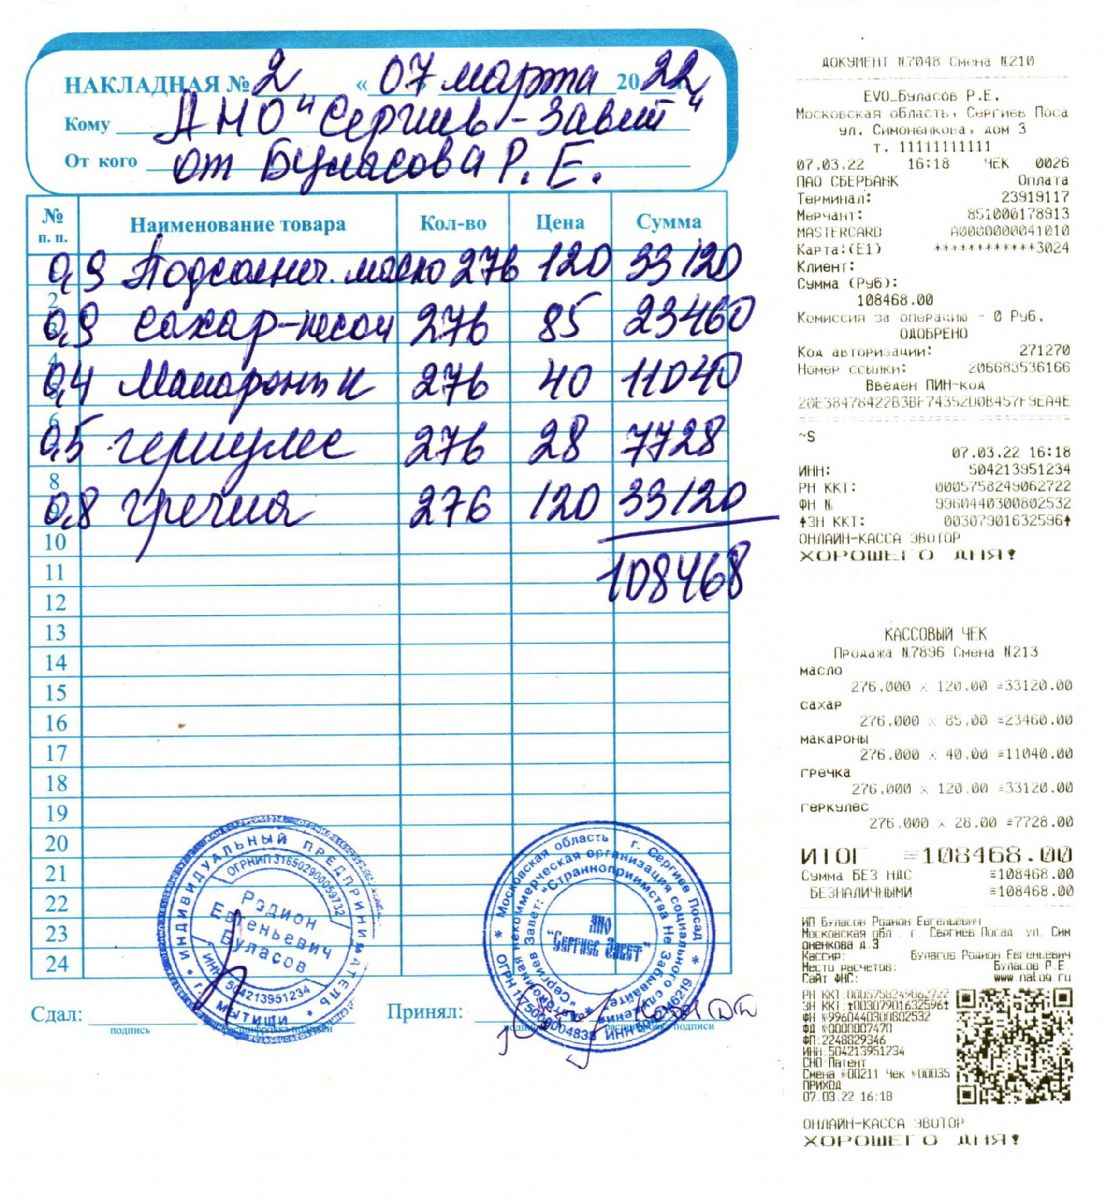 НАКЛАДНАЯ № 2 « 07 марта 2022
Кому АНО "Сергиев-Завет"
От кого от Буласова Р. Е.
№ п. п. Наименование товара Кол-во Цена Сумма
0,9 Подсолнеч. масло 276 120 33120
0,9 сахар-песок 276 85 23460
0,4 Макароны 276 40 11040
0,5 геркулес 276 28 7728
0,8 гречка 276 120 33120
10
108468
11
12
13
14
15
16
17
18
19
20
21
22
23
24
Сдал:
подпись
Принял:
ИНДИВИДУАЛЬНЫЙ ПРЕДПРИНИМАТЕЛЬ
* г. МЫТИЩИ *
ОГРНИП 316502900059732
Родион
Евгеньевич
Буласов
ИНН 504213951234
* Московская область г. Сергиев Посад *
некоммерческая организация социального служения
"Странноприимства Не Забывайте
АНО
"Сергиев Завет"
ДОКУМЕНТ №7048 Смена №210
EVO_Буласов Р.Е.
Московская область, Сергиев Поса
ул. Симоненкова, дом 3
т. 11111111111
07.03.22 16:18 ЧЕК 0026
ПАО СБЕРБАНК Оплата
Терминал: 23919117
Мерчант: 851000178913
MASTERCARD A0000000041010
Карта:(E1) ************3024
Клиент:
Сумма (Руб):
108468.00
Комиссия за операцию - 0 Руб.
ОДОБРЕНО
Код авторизации: 271270
Номер ссылки: 206683536166
Введен ПИН-код
20E3847842263BF74352D0B457F9EA4E
~S
07.03.22 16:18
ИНН: 504213951234
РН ККТ: 0005758249062722
ФН № 9960440300802532
↑ЗН ККТ: 00307901632596↑
ОНЛАЙН-КАССА ЭВОТОР
ХОРОШЕГО ДНЯ!
КАССОВЫЙ ЧЕК
Продажа №7896 Смена №213
масло
276.000 x 120.00 =33120.00
сахар
276.000 x 85.00 =23460.00
макароны
276.000 x 40.00 =11040.00
гречка
276.000 x 120.00 =33120.00
геркулес
276.000 x 28.00 =7728.00
ИТОГ =108468.00
Сумма БЕЗ НДС =108468.00
БЕЗНАЛИЧНЫМИ =108468.00
ИП Буласов Родион Евгеньевич
Московская обл. г. Сергиев Посад ул. Сим
оненкова д.3
Кассир: Буласов Родион Евгеньевич
Место расчетов: Буласов Р.Е
Сайт ФНС: www.nalog.ru
РН ККТ:0005758249062722
ЗН ККТ:↑00307901632596↑
ФН №9960440300802532
ФД №0000007470
ФП:2248829346
ИНН:504213951234
СНО:Патент
Смена №00211 Чек №00035
ПРИХОД
07.03.22 16:18
ОНЛАЙН-КАССА ЭВОТОР
ХОРОШЕГО ДНЯ!